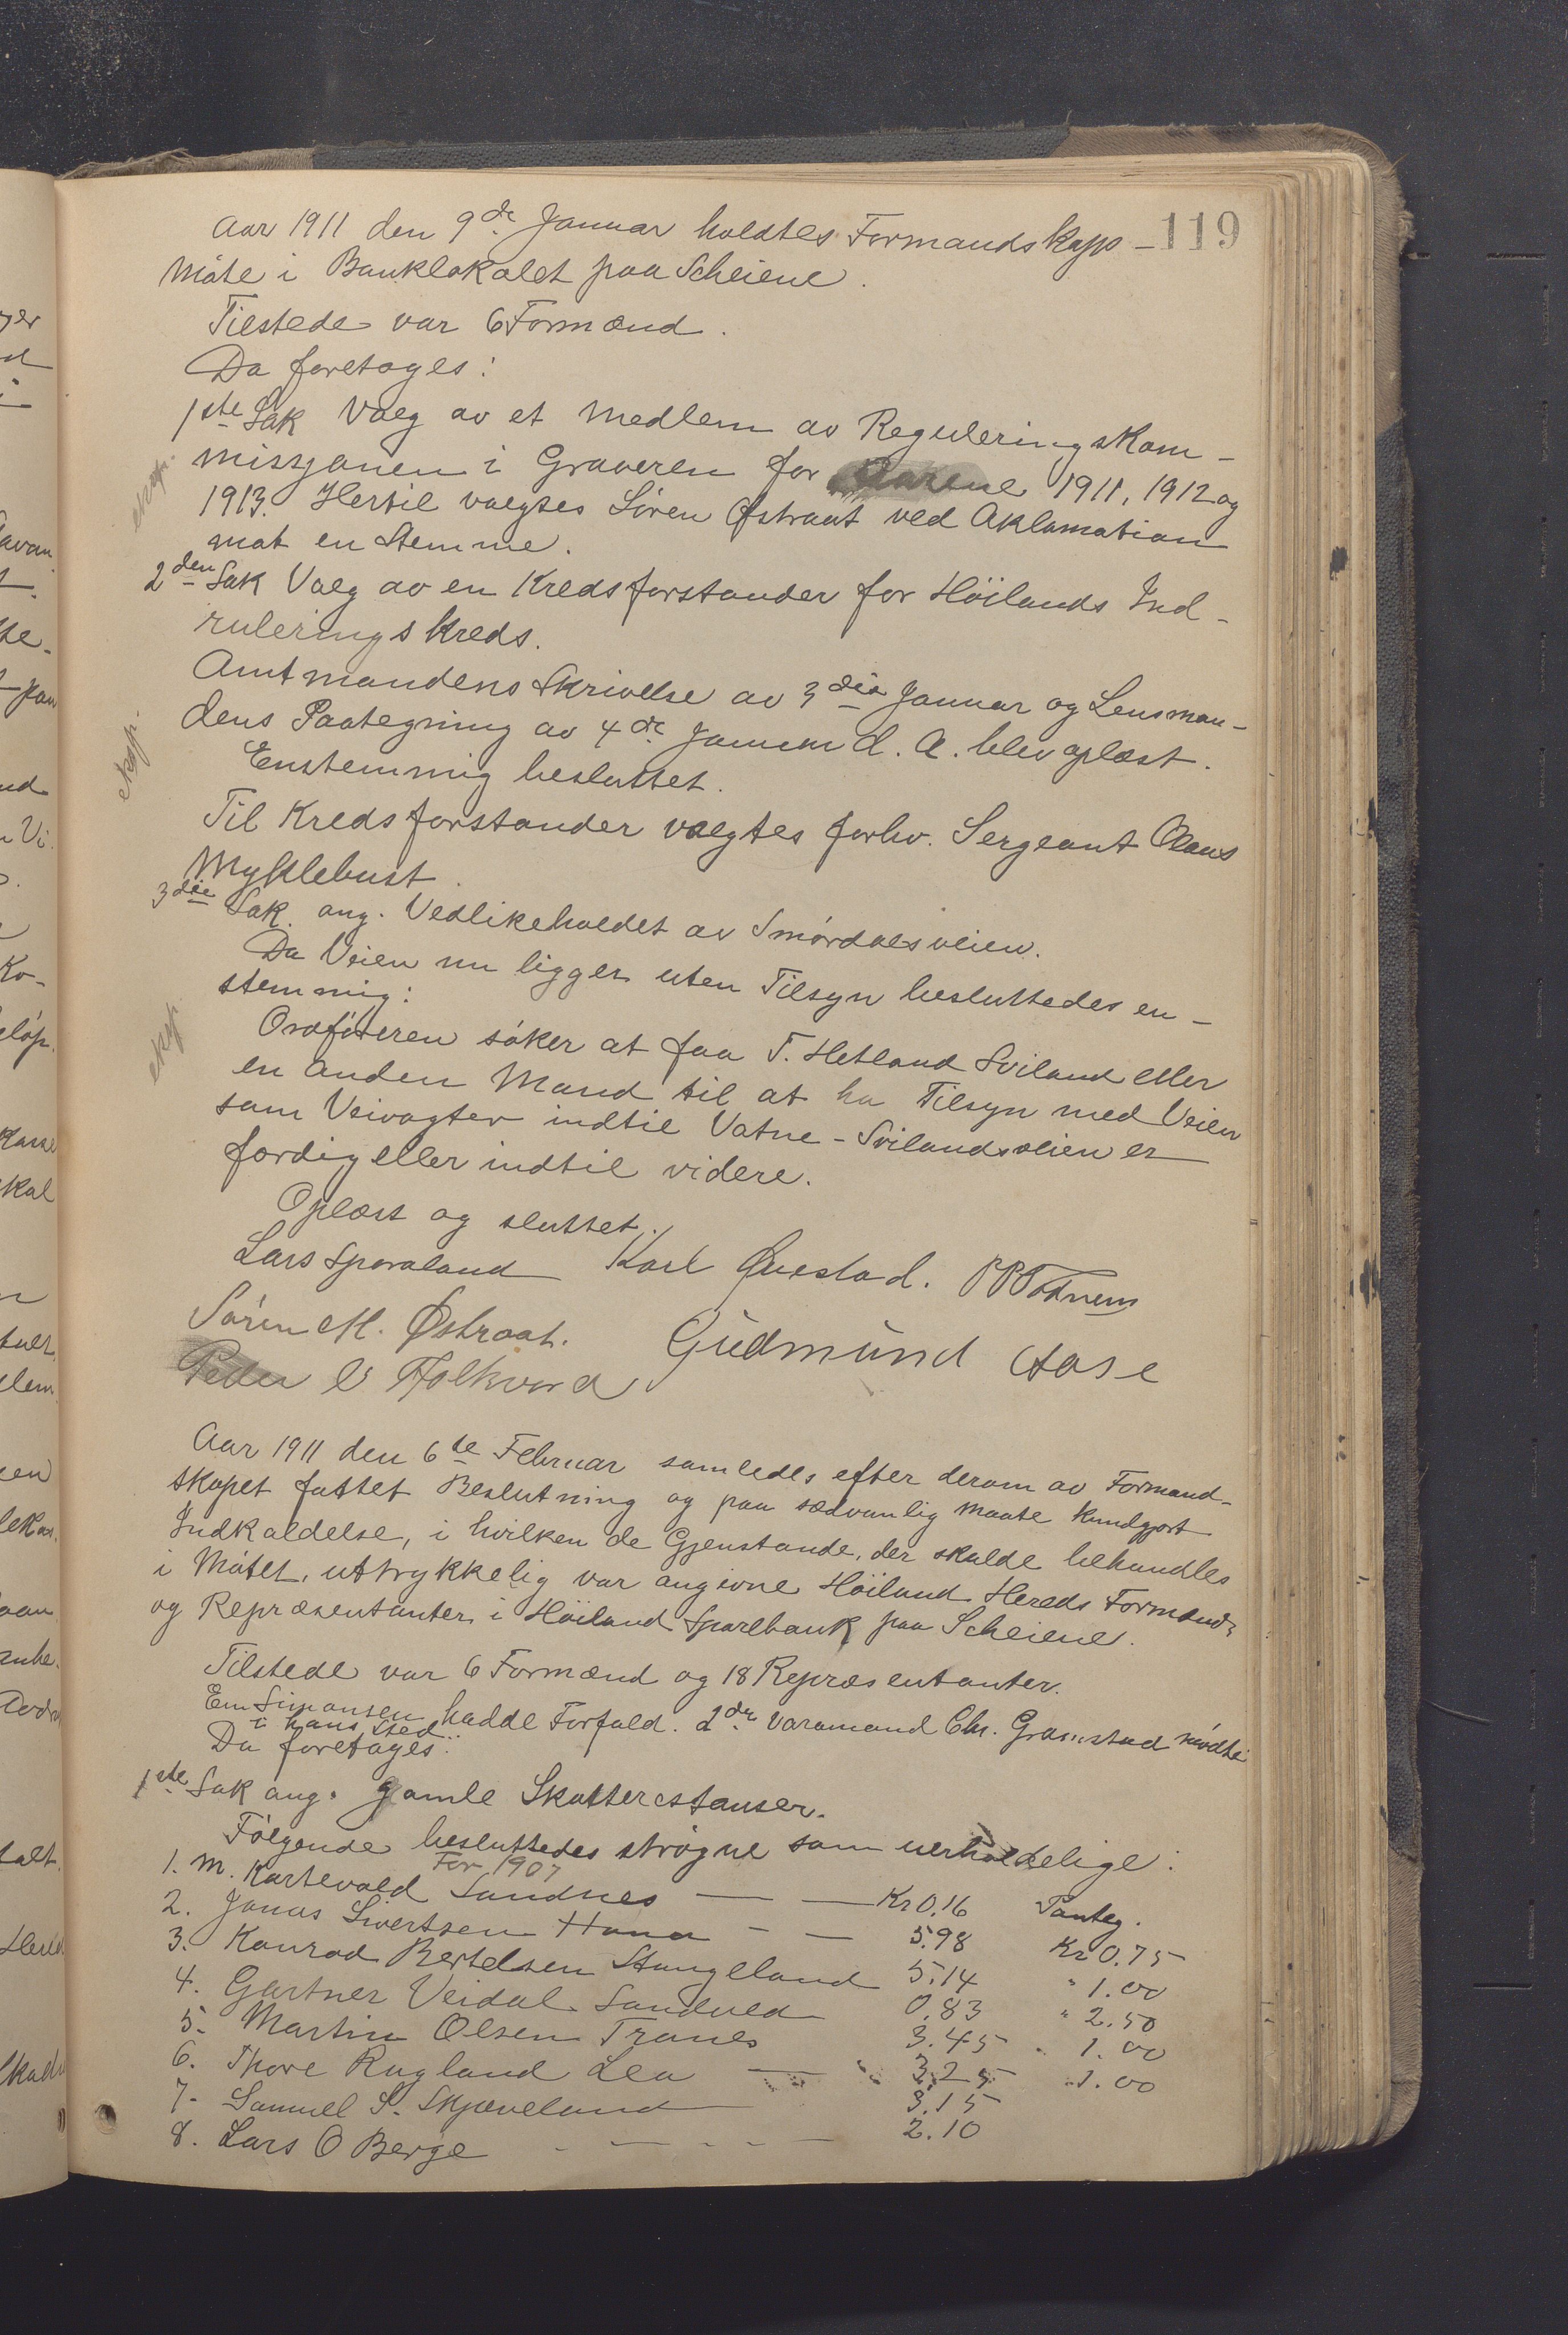 119
Aar 1911 den 9de Januar holdtes Formandskaps-
møte i Banklokalet paa Scheiene.
Tilstede var 6 Formænd.
Da foretages:
1ste Sak Valg av et Medlem av Reguleringskom-
eksp.
missjonen i Graveren for Aarene 1911, 1912 og
1913. Hertil valgtes Sören Østraat ved Aklamation
mot en Stemme.
2den Sak Valg av en Kredsforstander for Höilands Ind-
ruleringskreds.
Amtmandens Skrivelse av 3die Januar og Lensman-
dens Paategning av 4de Januar d. A. blev oplæst.
eksp.
Enstemmig besluttet.
Til Kredsforstander valgtes forhv. Sergeant Olaus
Myklebust.
3die Sak. ang. Vedlikeholdet av Smördalsveien.
Da Veien nu ligger uten Tilsyn besluttedes en-
stemmig:
eksp
Ordföreren söker at faa T. Hetland Sviland eller
en anden Mand til at ha Tilsyn med Veien
som Veivogter indtil Vatne-Svilandsveien er
færdig eller indtil videre.
Oplæst og sluttet.
Lars Sporaland Karl Øvestad. P P Todnem
Sören M. Østraat. Gudmund Aase
Peder O Folkvord
Aar 1911 den 6te Februar samledes efter derom av Formand-
skapet fattet Beslutning og paa sædvanlig Maate kundgjort
Indkaldelse, i hvilken de Gjenstande, der skulde behandles
i Mötet, uttrykkelig var angivne Höiland Hereds Formænd
og Repræsentanter i Höiland Sparebank paa Scheiene.
Tilstede var 6 Formænd og 18 Repræsentanter.
Em Simonsen hadde Forfald. 2den Varamand Chr. Gramstad mödte
i hans Sted.
Da foretages:
1ste Sak ang. gamle Skatterestanser.
Følgende besluttedes strögne som uerholdelige:
For 1907
1. M. Kartevold Sandnes Kr 0.16 Panteg.
2. Jonas Sivertsen Hana 5.98 Kr 0.75
3. Konrad Bertelsen Stangeland 5.14 " 1.00
4. Gartner Veidal Sandved 0.83 " 2.50
5. Martin Olsen Tranes 3.45 " 1.00
6. Thore Rugland Lea 3.25 " 1.00
7. Samuel S. Skjæveland 3.15
8. Lars O Berge 2.10